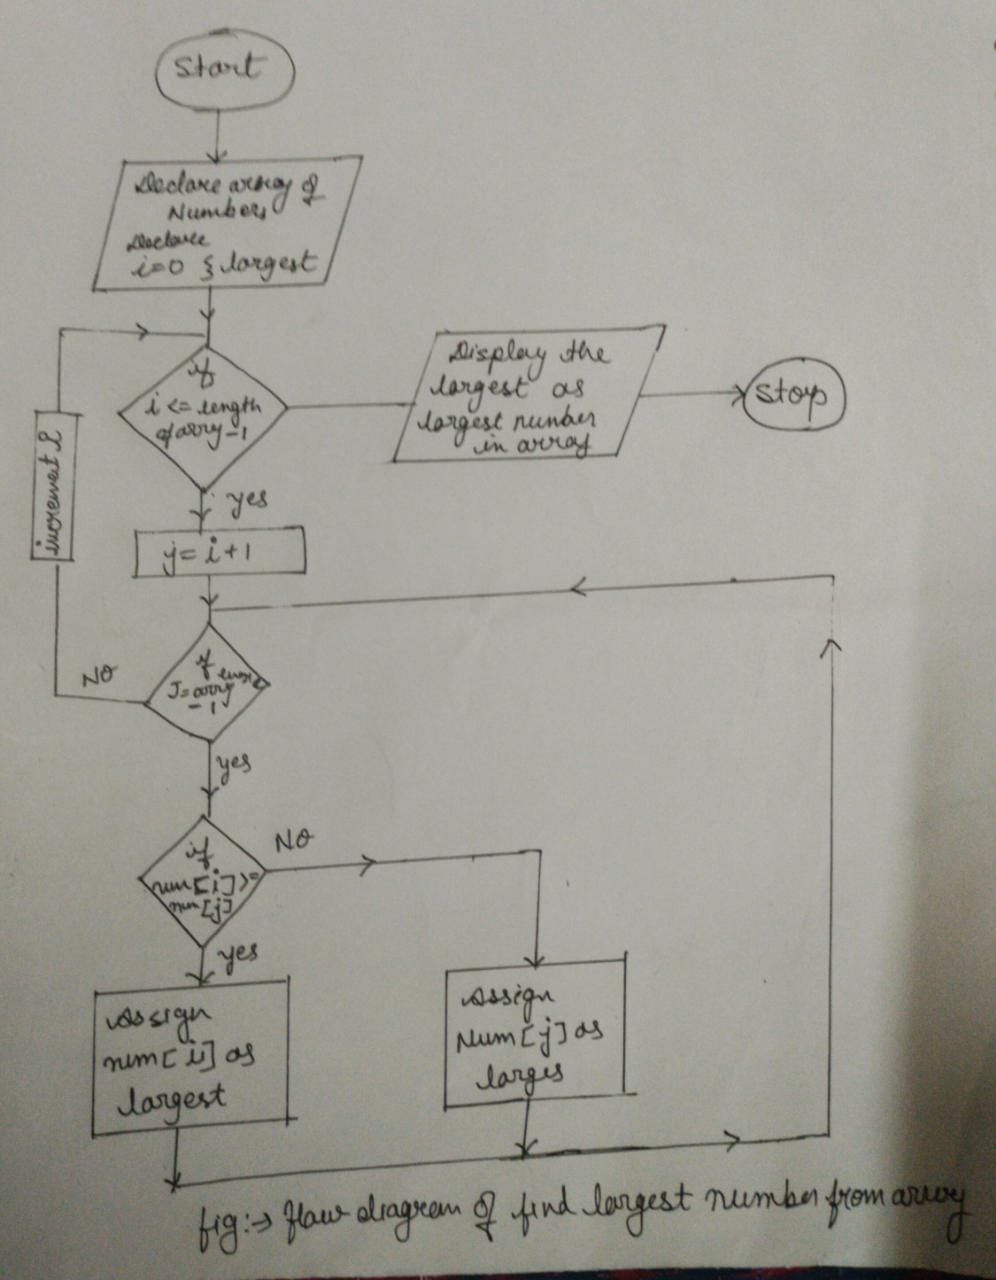 Start
Declare array of
Numbers,
Declare
i=0 & largest
if
i <= length
of arry -1
Display the
largest as
largest number
in array
Stop
increment i
yes
j = i + 1
NO
if
J= arry
-1
yes
NO
if
num[i] >=
num[j]
yes
Assign
num[i] as
largest
Assign
Num[j] as
larges
fig:→ flow diagram of find largest number from array